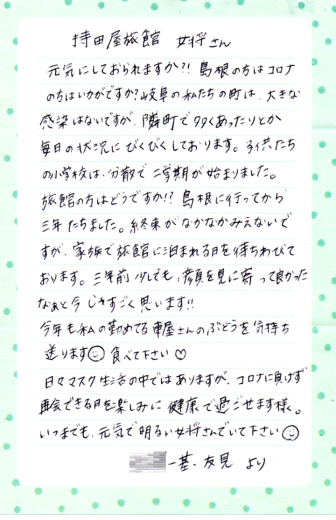 持田屋旅館 女将さん
元気にしておられますか?! 島根の方はコロナ
の方はいかがですか?岐阜の私たちの町は、大きな
感染はないですが、隣町で多くあったりとか
毎日の状況にびくびくしております。子供たち
の小学校は、分散で二学期が始まりました。
旅館の方はどうですか!? 島根に行ってから
三年たちました。終束がなかなかみえないで
すが、家族で旅館に泊まれる日を待ちわびて
おります。三年前少しでも、お顔を見に寄って良かった
なぁと今じきすごく思います!!
今年も私の勤めてる 屋さんのぶどうを気持ち
送ります 食べて下さい♡
日々マスク生活の中ではありますが、コロナに負けず
再会できる日を楽しみに 健康で過ごせます様。
いつまでも、元気で明るい女将さんでいて下さい
一基、友見 より